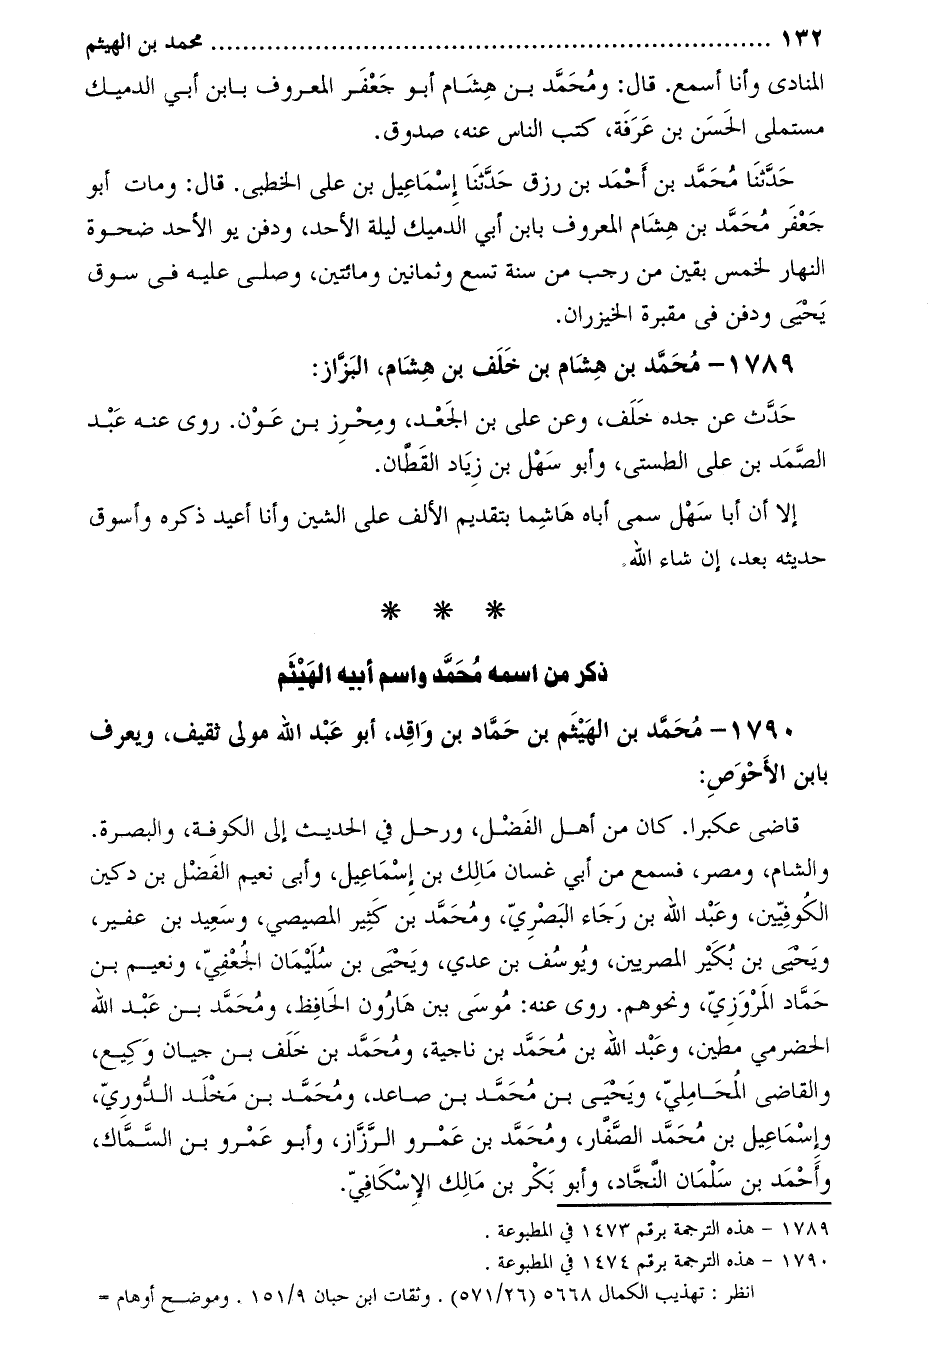 ١٣٢ ........................................................................ محمد بن الهيثم
المنادى وأنا أسمع. قال: ومُحَمَّد بن هِشَام أبو جَعْفَر المعروف بابن أبي الدميك
مستملى الحَسَن بن عَرَفَة، كتب الناس عنه، صدوق.
حَدَّثَنَا مُحَمَّد بن أَحْمَد بن رزق حَدَّثَنَا إِسْمَاعِيل بن على الخطبى. قال: ومات أبو
جَعْفَر مُحَمَّد بن هِشَام المعروف بابن أبي الدميك ليلة الأحد، ودفن يو الأحد ضحوة
النهار لخمس بقين من رجب من سنة تسع وثمانين ومائتين، وصلى عليه فى سوق
يَحْيَى ودفن فى مقبرة الخيزران.
١٧٨٩- مُحَمَّد بن هِشَام بن خَلَف بن هِشَام، البَزَّاز:
حَدَّث عن جده خَلَف، وعن على بن الجَعْد، ومِحْرِز بن عَوْن. روى عنه عَبْد
الصَّمَد بن على الطستى، وأبو سَهْل بن زِيَاد القَطَّان.
إلا أن أبا سَهْل سمى أباه هَاشِما بتقديم الألف على الشين وأنا أعيد ذكره وأسوق
حديثه بعد، إن شاء الله.
* * *
ذكر من اسمه مُحَمَّد واسم أبيه الهَيْثَم
١٧٩٠- مُحَمَّد بن الهَيْثَم بن حَمَّاد بن وَاقِد، أبو عَبْد الله مولى ثقيف، ويعرف
بابن الأَحْوَصِ:
قاضى عكبرا. كان من أهل الفَضْل، ورحل في الحديث إلى الكوفة، والبصرة.
والشام، ومصر، فسمع من أبي غسان مَالِك بن إِسْمَاعِيل، وأبى نعيم الفَضْل بن دكين
الكُوفِيِّين، وعَبْد الله بن رَجَاء البَصْرِيّ، ومُحَمَّد بن كَثِير المصيصي، وسَعِيد بن عفير،
ويَحْيَى بن بُكَيْر المصريين، ويُوسُف بن عدي، ويَحْيَى بن سُلَيْمَان الجُعْفِيّ، ونعيم بن
حَمَّاد المَرْوَزِيّ، ونحوهم. روى عنه: مُوسَى بين هَارُون الحَافِظ، ومُحَمَّد بن عَبْد الله
الحضرمي مطين، وعَبْد الله بن مُحَمَّد بن ناجية، ومُحَمَّد بن خَلَف بن جيان وَكِيع،
والقاضى المُحَامِليّ، ويَحْيَى بن مُحَمَّد بن صاعد، ومُحَمَّد بن مَخْلَد الدُّورِيّ،
وإِسْمَاعِيل بن مُحَمَّد الصَّفَّار، ومُحَمَّد بن عَمْرو الرَّزَّاز، وأبو عَمْرو بن السَّمَّاك،
وأَحْمَد بن سَلْمَان النَّجَّاد، وأبو بَكْر بن مَالِك الإِسْكَافِيّ.
١٧٨٩ - هذه الترجمة برقم ١٤٧٣ في المطبوعة .
١٧٩٠ - هذه الترجمة برقم ١٤٧٤ في المطبوعة .
انظر : تهذيب الكمال ٥٦٦٨ (٥٧١/٢٦) . وثقات ابن حبان ١٥١/٩ . وموضح أوهام =